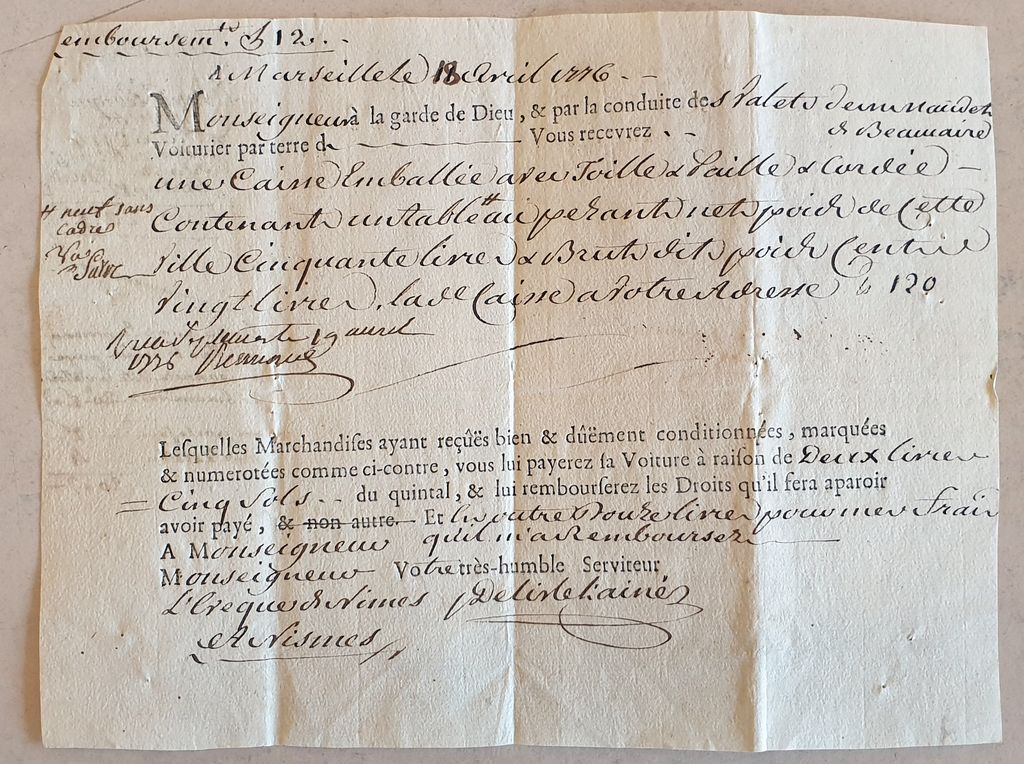 emboursemts. # 12..
A Marseille le 18 Avril 1776. -
Monseigneur à la garde de Dieu, & par la conduite des Valets de mr naudet
Voiturier par terre d Vous recevrez de Beaucaire
une Caisse Emballée avec Toille & Paille & Cordée
# neuf sans
cadres
Contenant un tableau # pezant net poids de Cette
Ville Cinquante livres & Brut dit poids Cent
Vingt livres. la de Caisse a Votre Adresse ℔ 120
19 avril
1776
Leſquelles Marchandiſes ayant reçûës bien & dûëment conditionnées, marquées
& numerotées comme ci-contre, vous lui payerez ſa Voiture à raiſon de Deux livres
Cinq Sols du quintal, & lui rembourſerez les Droits qu'il ſera aparoir
avoir payé, & non autre. Et en outre Douze livres pour mes frais
A Monseigneur qu'il m'a Remboursez
Monseigneur Votre très-humble Serviteur
L'Eveque de Nimes Delisle l'ainé
A Nismes